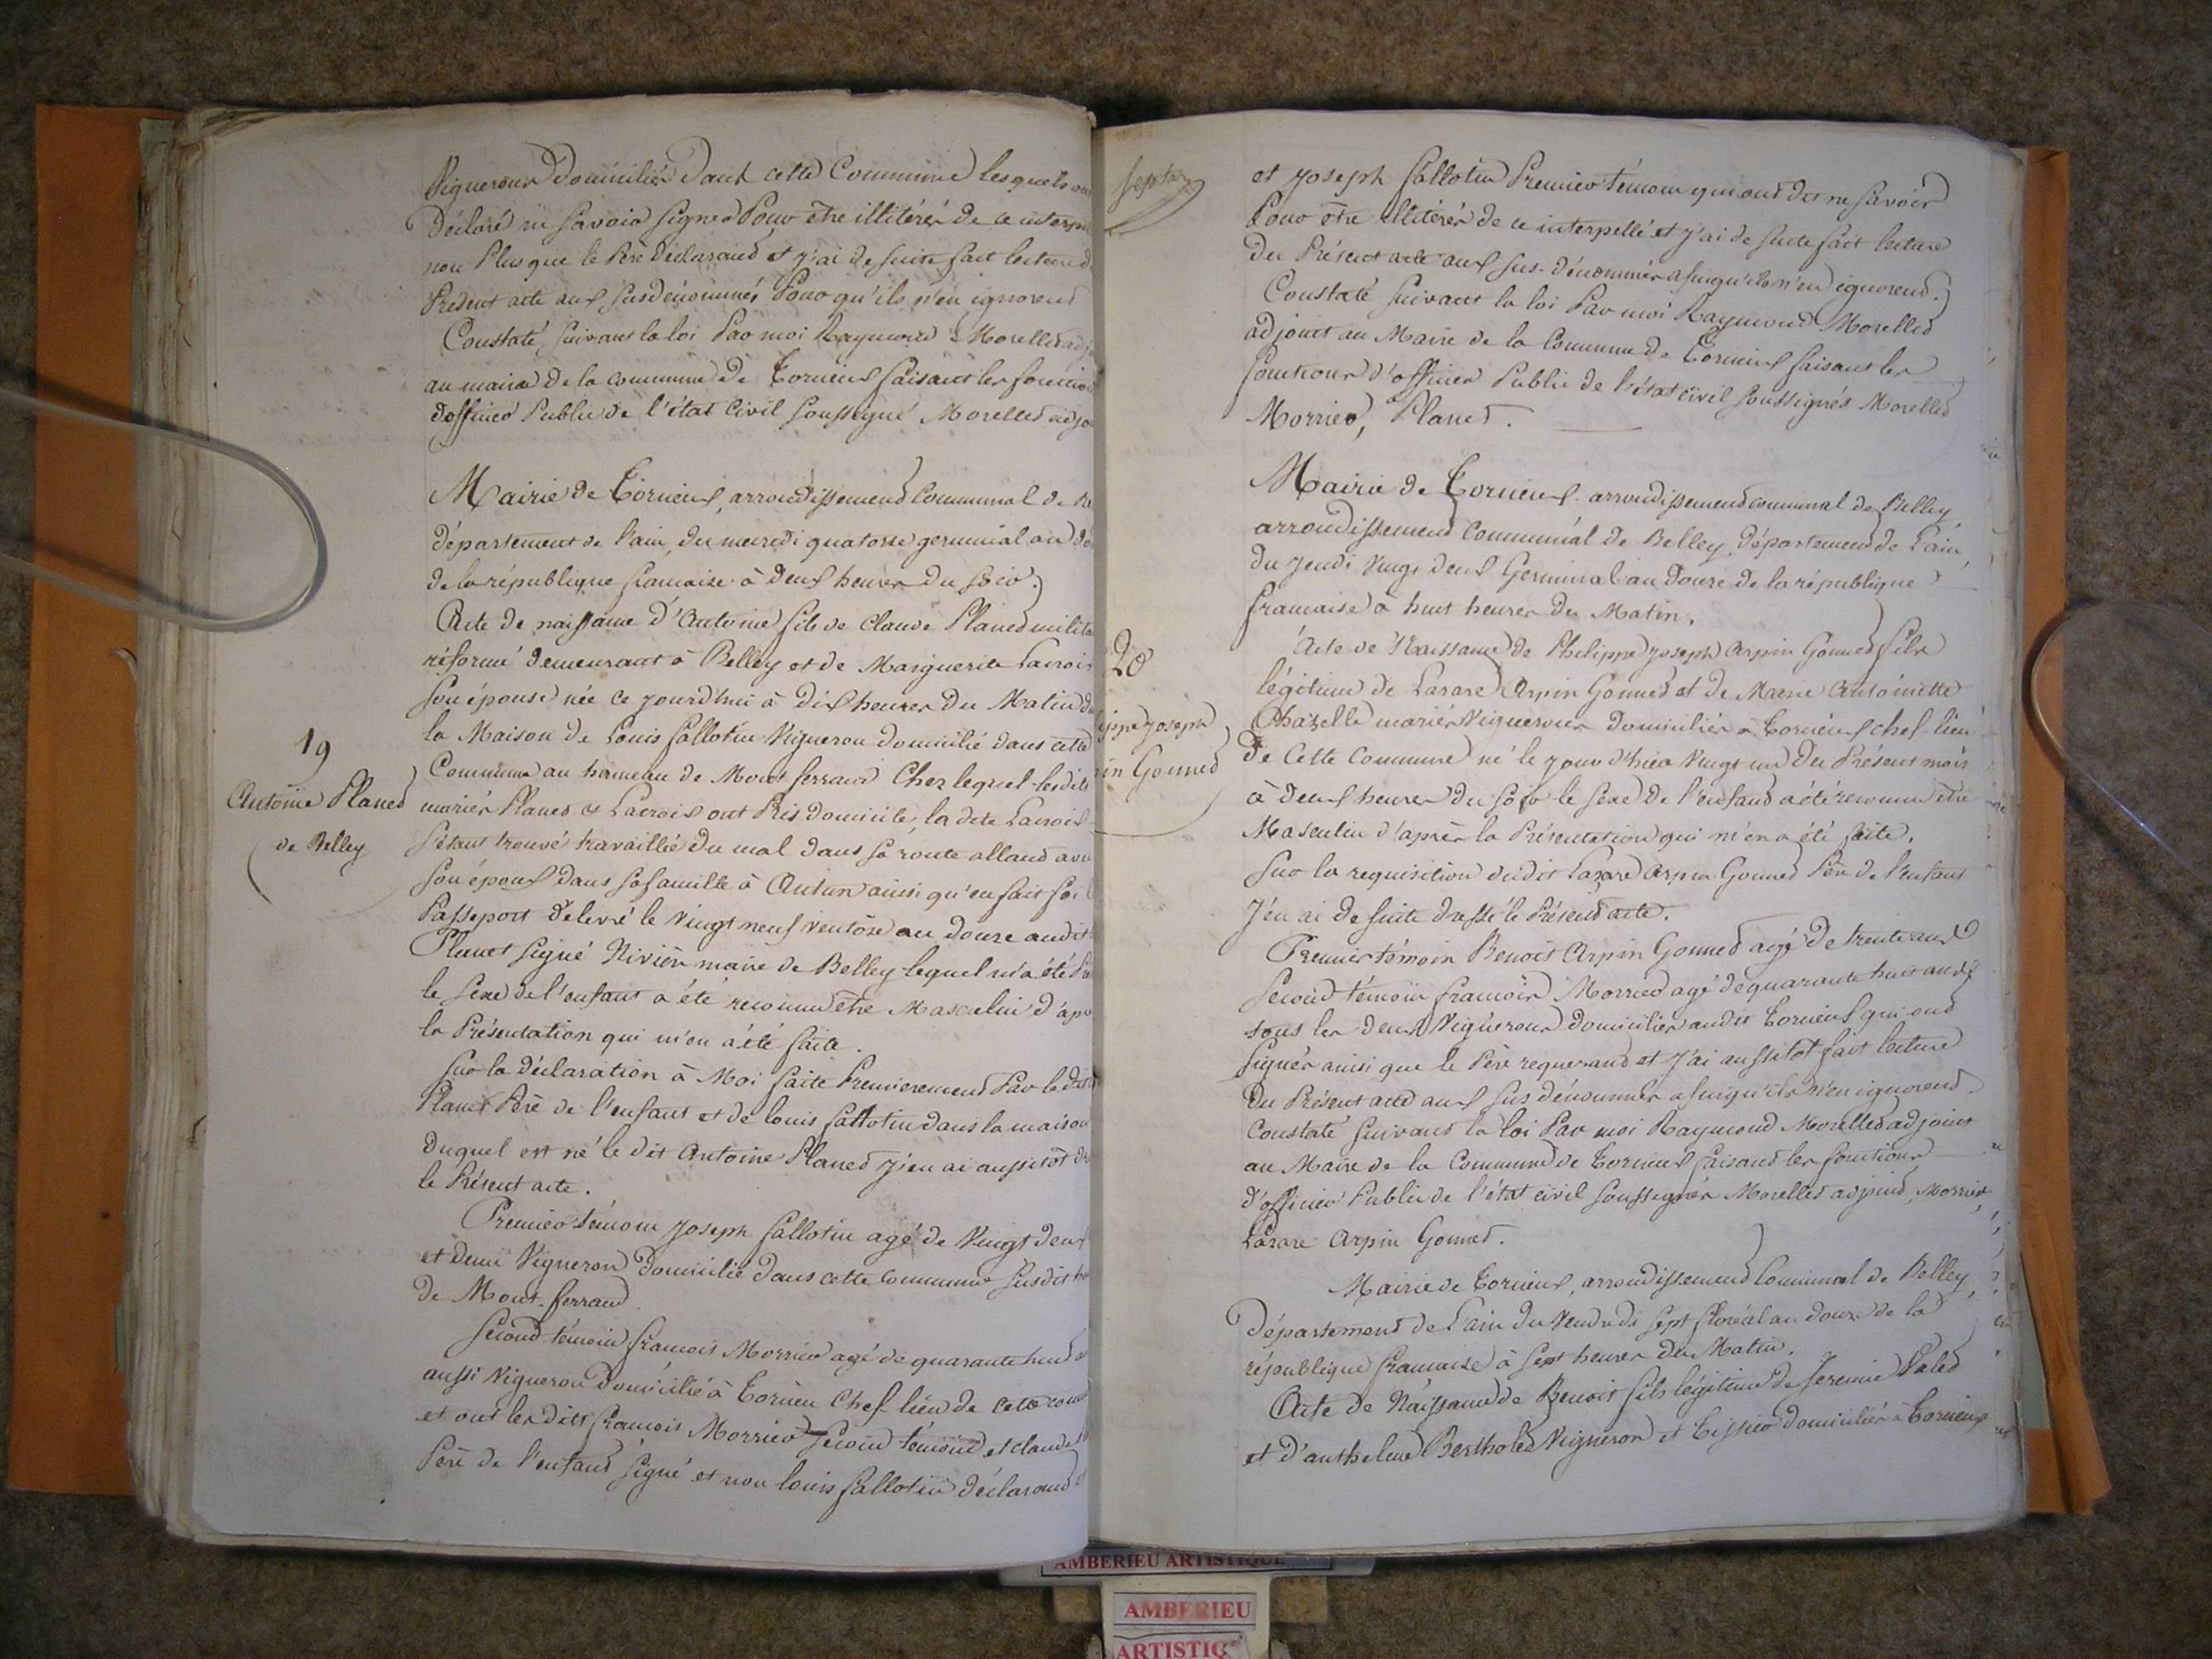 Vignerons domiciliés dans cette Commune lesquels
Déclaré ne Savoir Signer Pour être illitérés de ce
non Plus que le Père Déclarand et j'ai de suite fait lecture
Présent acte aux Susdénommés Pour qu'ils n'en ignorent
Constaté, Suivant la loi Par moi Raymond Morelled
au maire de la commune de Torcieux faisant les
d'officier Public de l'état Civil Soussigné Morelled
Mairie de Torcieux, arrondissement Communal de
département de l'ain, du mercredi quatorse germinal an
de la république francaise à deux heures du Soir.
Acte de naissance d'Antoine fils de Claude Planed
réformé demeurant à Belley et de Marguerite Lacroix
Son épouse née ce jourd'hui à dix heures du Matin
la Maison de Louis fallotin Vigneron domicilié dans cette
19
Commune au hameau de Mont ferrand Chez lequel lesdits
Antoine Planed
mariés Planed & Lacroix ont Pris domicile, la dite Lacroix
de Belley
S'étant trouvé travaillié du mal dans Sa route alland
Son époux dans Sa famille à Autun ainsi qu'en fait foi
Passeport délivré le Vingt neuf Ventôse an douze audit
Planet Signé Nivière maire de Belley lequel m'a été
le Sexe de l'enfant a été reconnu être Masculin d'
la Présentation qui m'en a été faite.
Sur la déclaration à Moi faite Premierement Par ledit
Planet Père de l'enfant et de louis fallotin dans la maison
duquel est né le dit Antoine Planed j'en ai aussitot
le Présent acte.
Premier témoin Joseph fallotin agé de Vingt deux
et demi Vigneron domicilié dans cette commune Susdit
de Mont-ferrand
Second témoin francois Morrier agé de quarante huit
aussi Vigneron domicilié à Torcieu Chef-lieu de cette
et ont les dits francois Morrier Second témoin et claude
Père de l'enfant Signé et non louis fallotin déclarand
et Joseph fallotin Premier témoin qui ont dit ne Savoir
Pour être illitérés de ce interpellé et j'ai de suite fait lecture
du Présent acte aux Sus-dénommés afin qu'ils n'en ignorent.
Constaté Suivant la loi Par moi Raymond Morelled
adjoint au Maire de la Commune de Torcieux faisant les
fonctions d'officier Public de l'état civil Soussignés Morelled
Morrier, Planet.
Mairie de Torcieux arrondissement communal de Belley,
arrondissement Communal de Belley, département de L'ain,
du Jeudi Vingt deux Germinal an Douze de la république
francaise à huit heures du Matin.
20
Acte de Naissance de Philippe Joseph Arpin Gonned fils
légitime de Lazare Arpin Gonned et de Marie Antoinette
Joseph
Chazelle mariés Vignerons domiciliés à Torcieux chef-lieu
Gonned
de Cette Commune né le jour d'hier Vingt un du Présent mois
à deux heures du Soir le Sexe de l'enfand a été reconnu être
Masculin d'après la Présentation qui m'en a été faite.
Sur la requisition dudit Lazare Arpin Gonned Père de l'enfant
J'en ai de suite dressé le Présend acte.
Premier témoin Benoit Arpin Gonned agé de trente ans
Second témoin francois Morried agé de quarante huit ans
tous les deux Vignerons domiciliés audit Torcieux qui ont
Signés ainsi que le Père requerand et j'ai aussitot fait lecture
du Présent acte aux Sus dénommés afin qu'ils n'en ignorend.
Constaté Suivant la loi Par moi Raymond Morelled adjoint
au Maire de la Commune de Torcieux faisand les fonctions
d'officier Public de l'état civil Soussignés Morelled adjoind, Morrier,
Lazare Arpin Gonned.
Mairie de Torcieux, arrondissement Communal de Belley,
Département de L'ain du Vendredi Sept floréal an douze de la
république francaise à Sept heures du Matin.
Acte de Naissance de Benoit fils légitime de Jeremie Valed
et d'anthelme Bertholed Vigneron et Tissier domiciliés à Torcieux
AMBERIEU ARTISTIQUE
AMBERIEU
ARTISTIQ